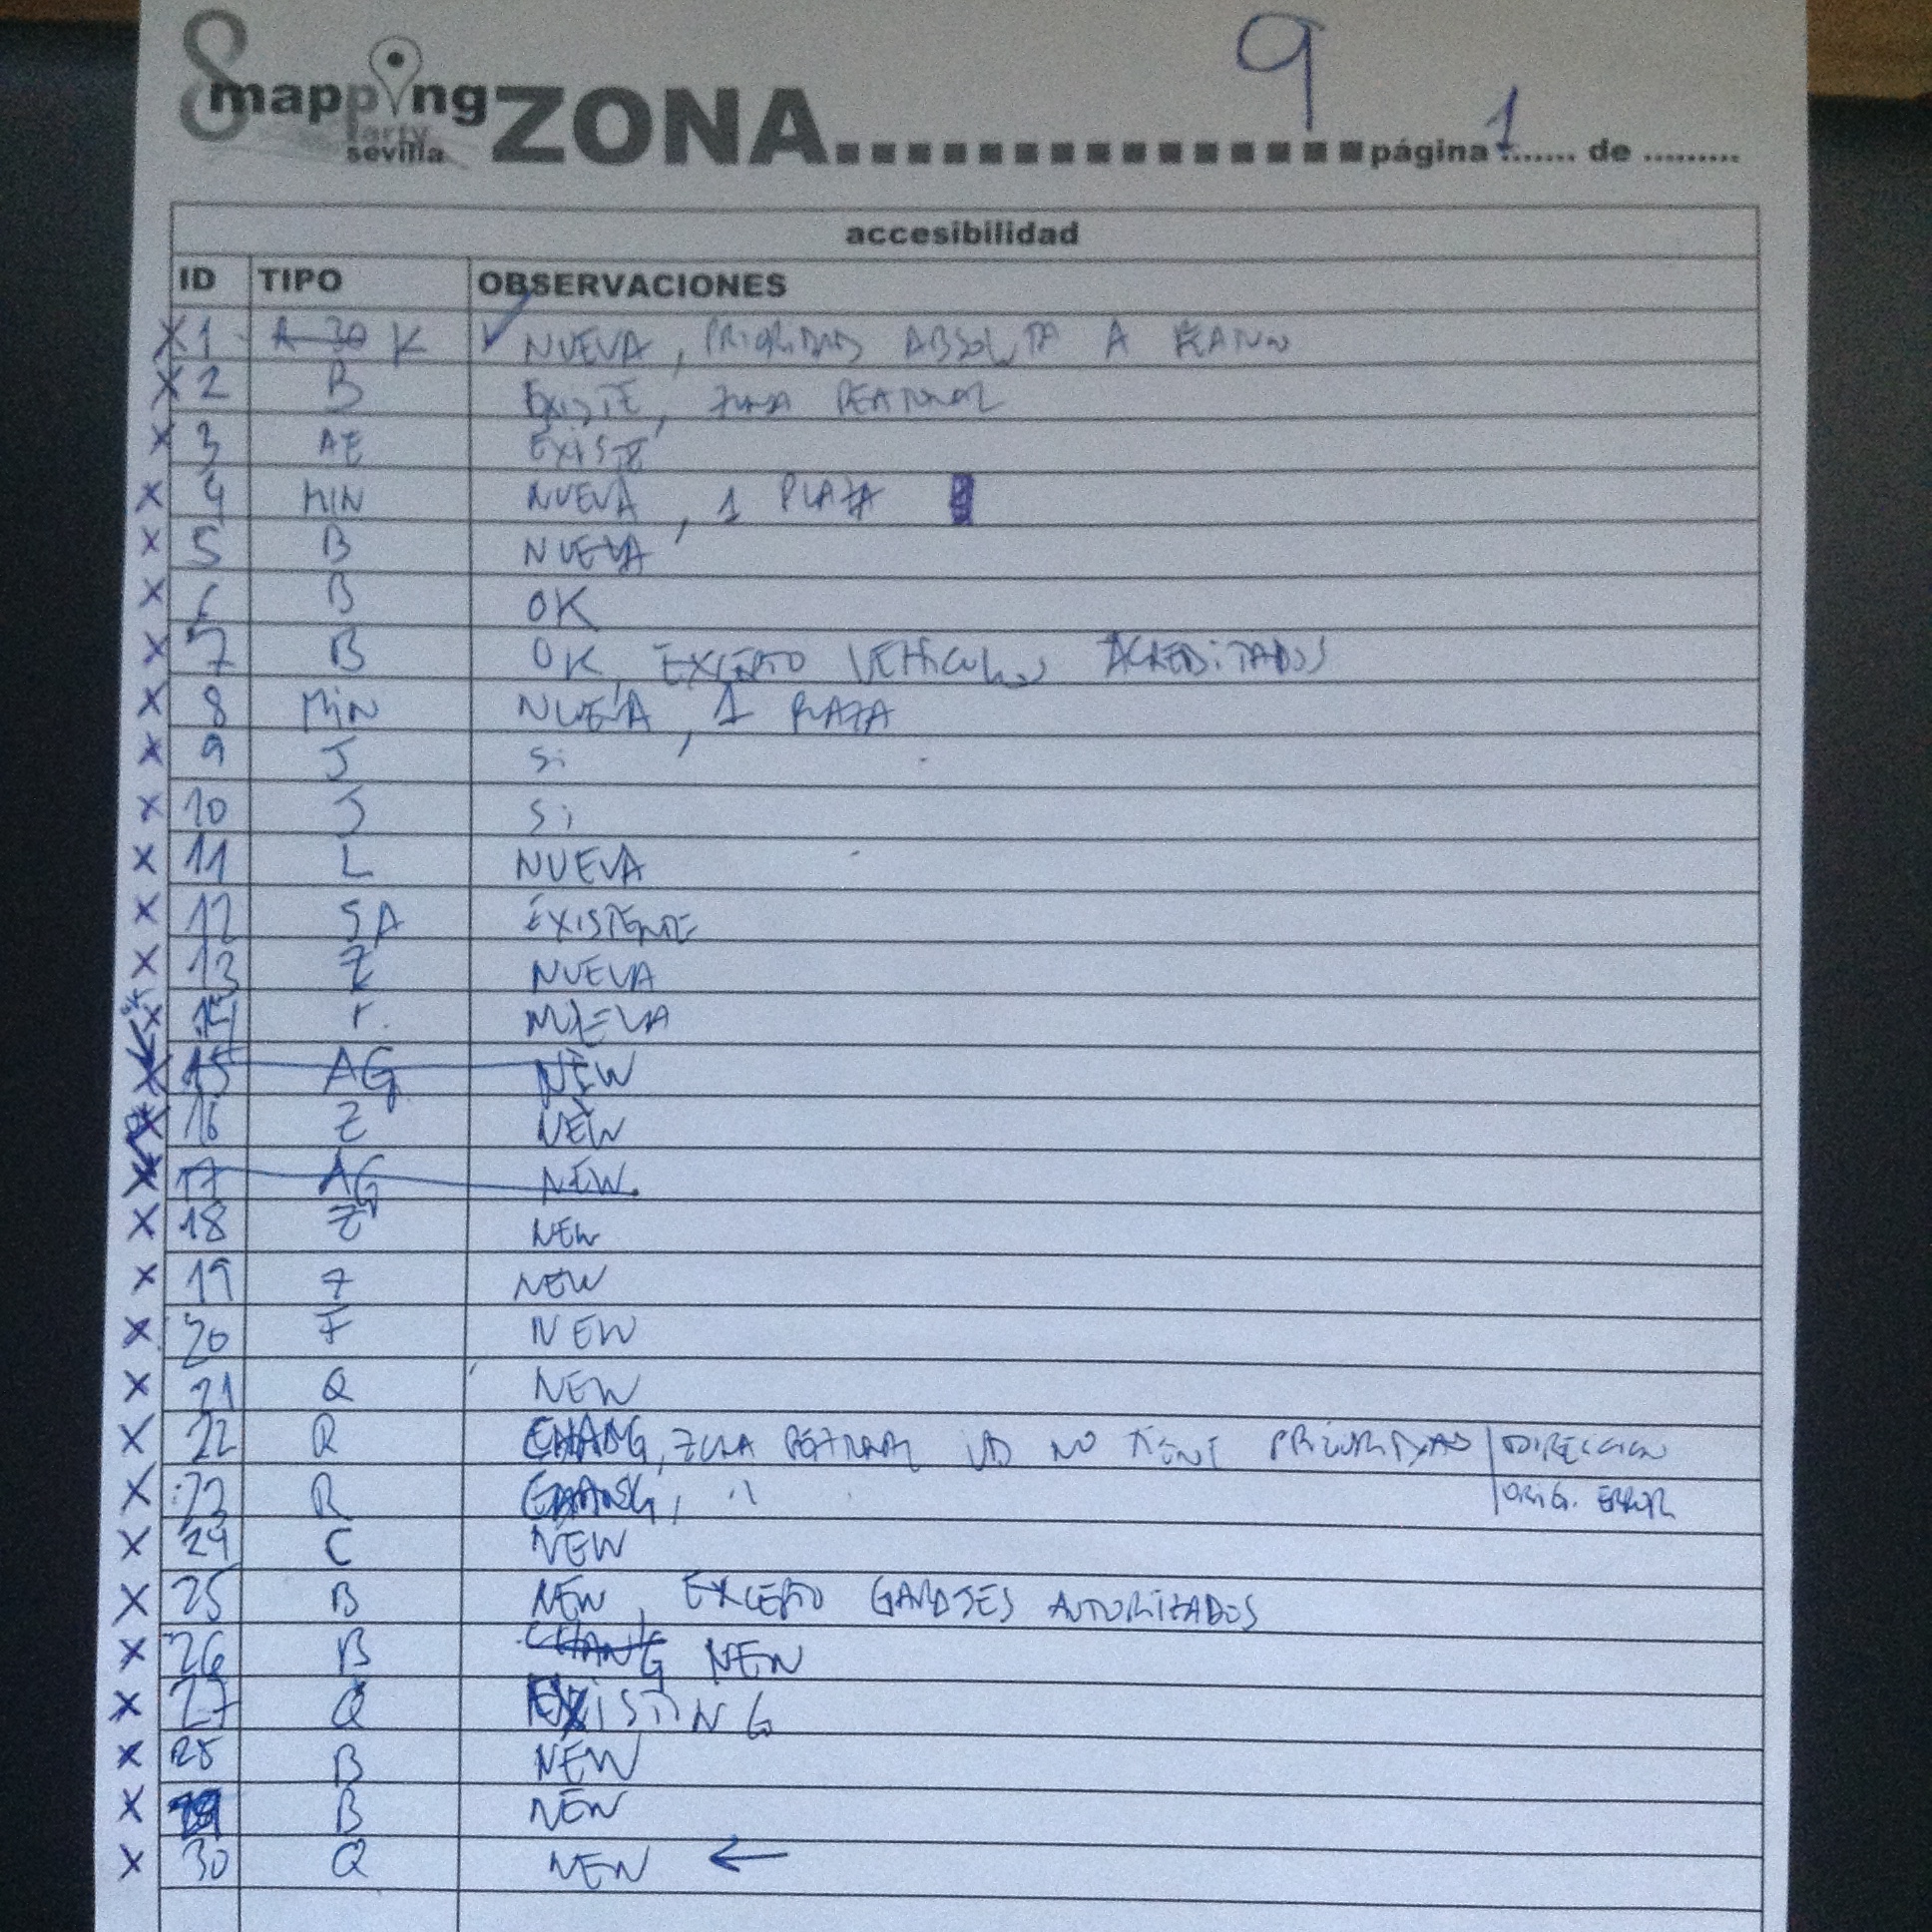 mapping party sevilla ZONA 9 página 1 de
accesibilidad
ID TIPO OBSERVACIONES
X 1 A 30 K ✓ NUEVA, PRIORIDAD ABSOLUTA A
X 2 B EXISTE, ZONA PEATONAL
X 3 AE EXISTE
X 4 MIN NUEVA, 1 PLAZA
X 5 B NUEVA
X 6 B OK
X 7 B OK, EXCEPTO VEHICULOS ACREDITADOS
X 8 MIN NUEVA, 1 PLAZA
X 9 J Si
X 10 J Si
X 11 L NUEVA
X 12 SA EXISTENTE
X 13 Z NUEVA
X 14 r. NUEVA
X 15 AG NEW
X 16 Z NEW
X 17 AG NEW
X 18 Z NEW
X 19 Z NEW
X 20 F NEW
X 21 Q NEW
X 22 R CHANG, ZONA PEATONAL NO TIENE PRIORIDAD DIRECCION
X 23 R CHANG, " ORIG. ERROR
X 24 C NEW
X 25 B NEW, EXCEPTO GARAJES AUTORIZADOS
X 26 B CHANG NEW
X 27 Q EXISTING
X 28 B NEW
X 29 B NEW
X 30 Q NEW ←